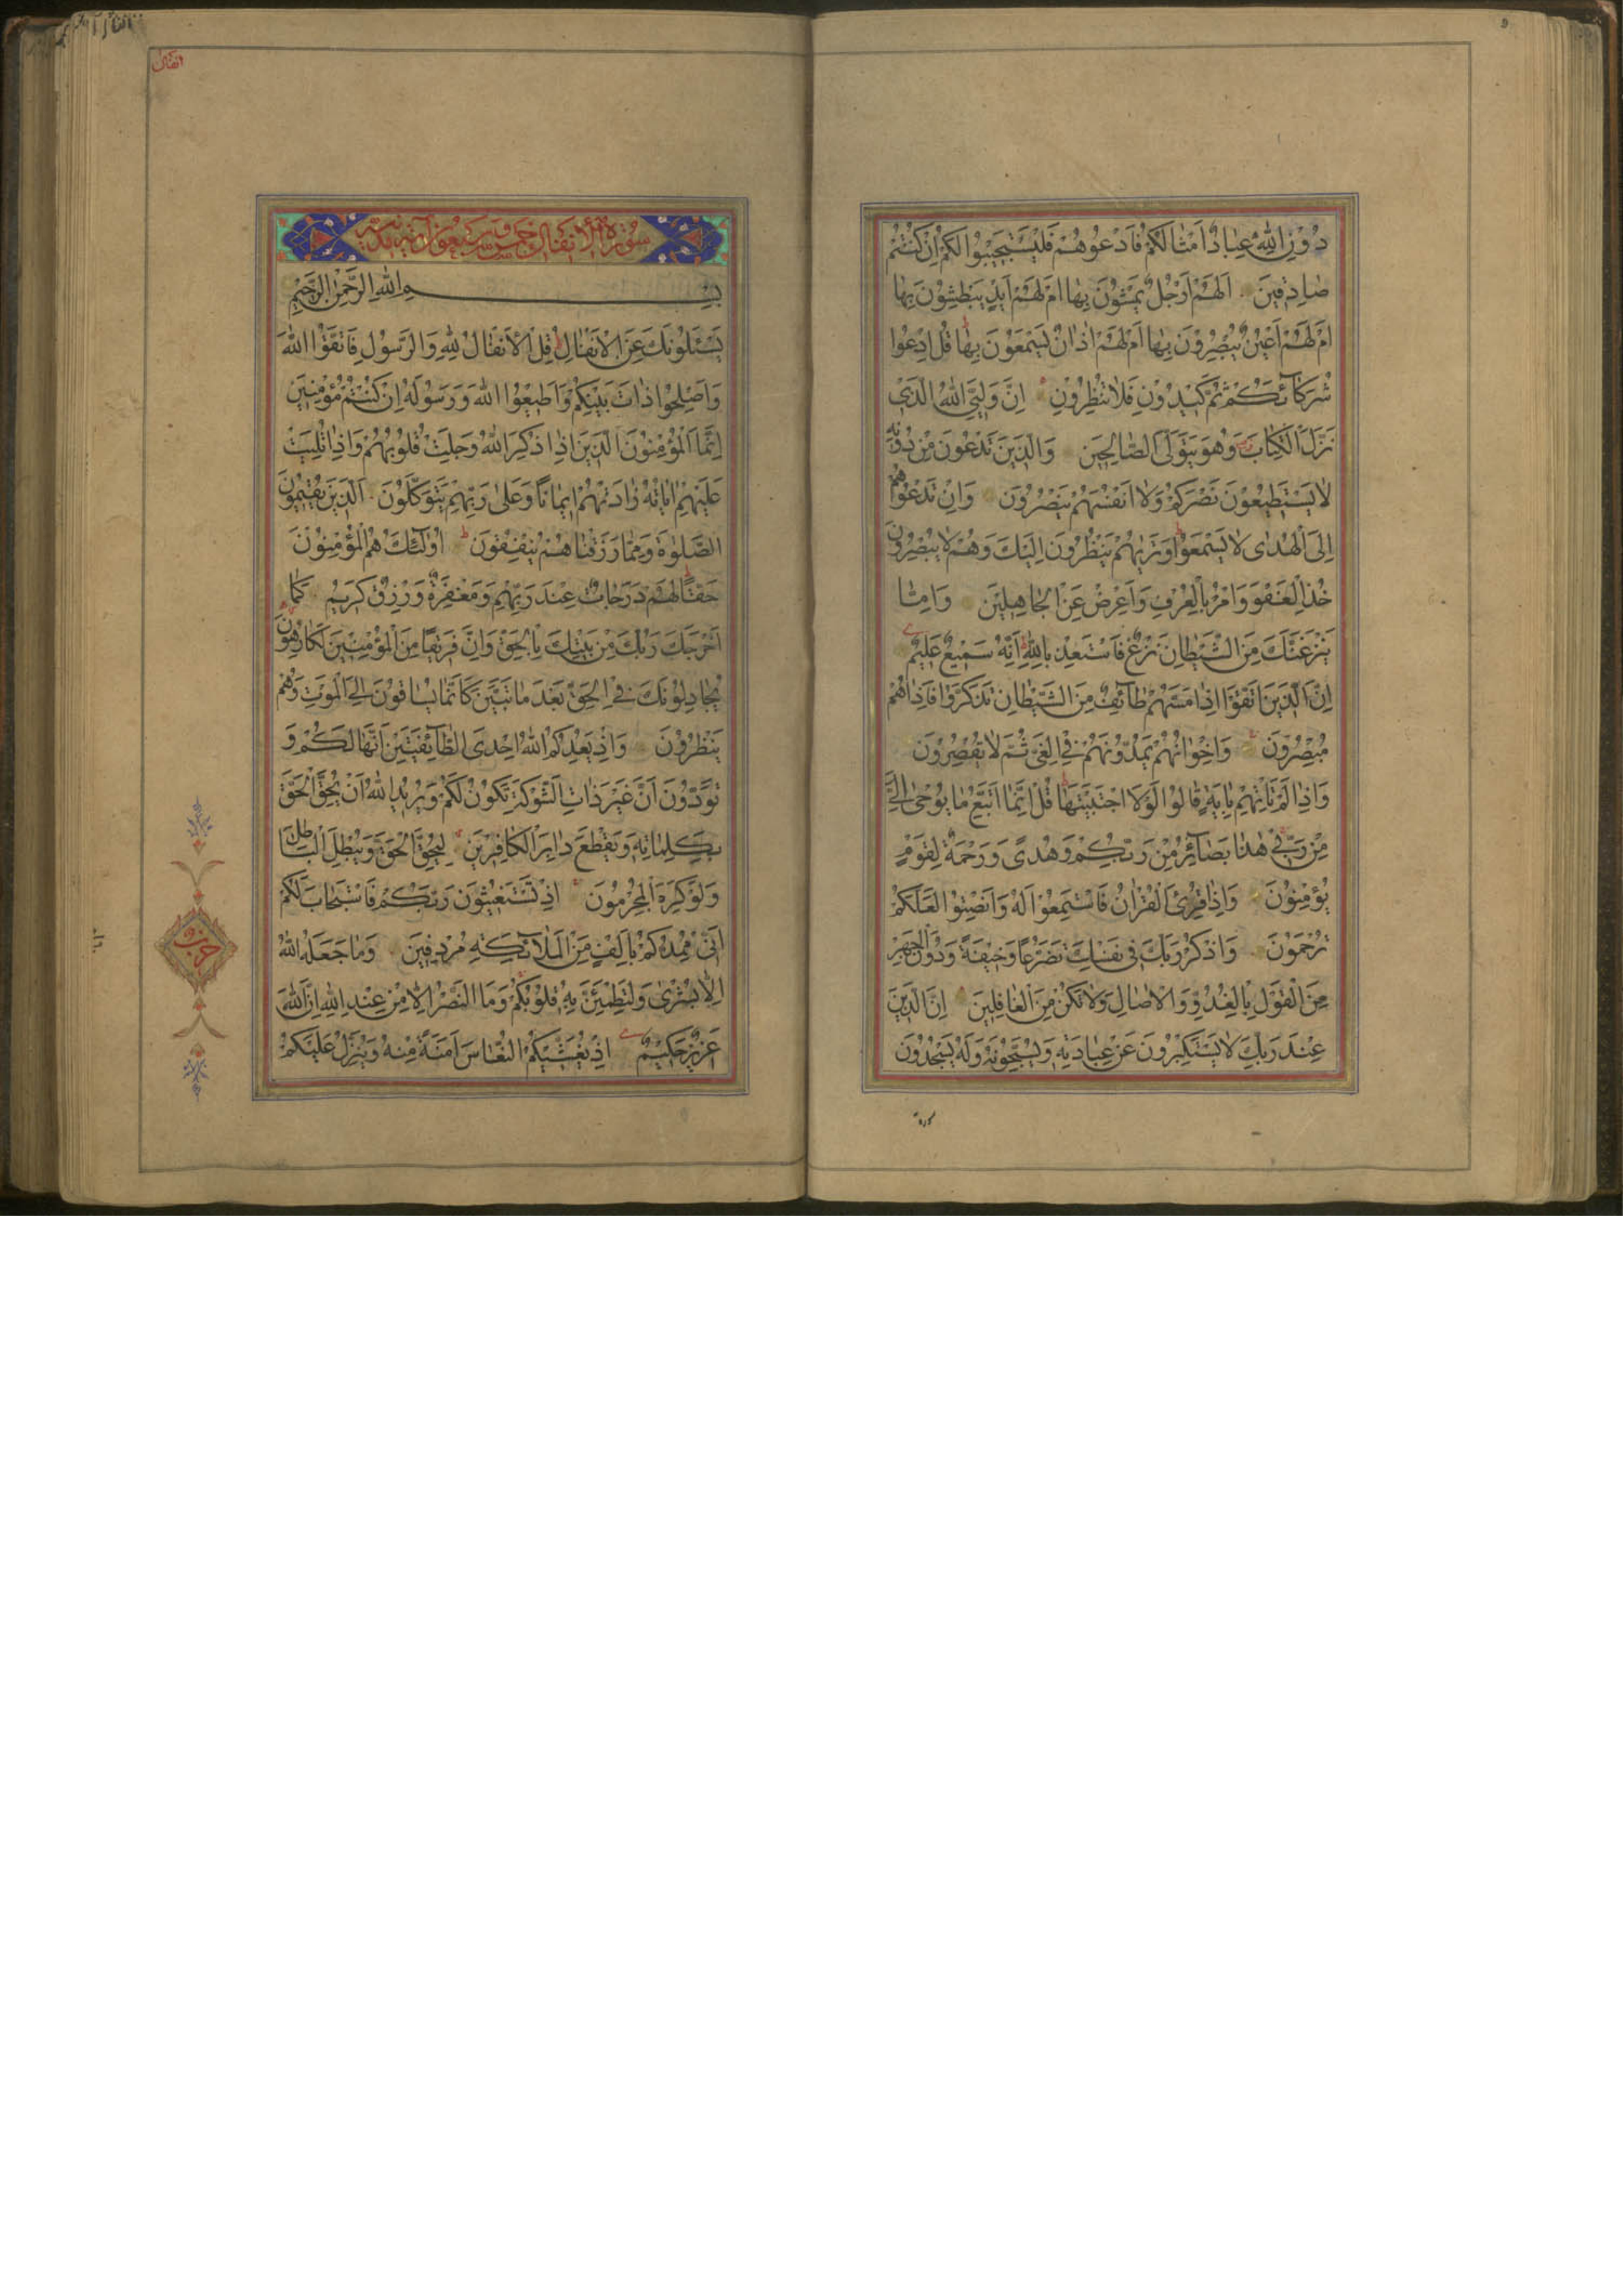 دُونِ اللّٰهِ عِبَادٌ اَمْثَالُكُمْ فَادْعُوهُمْ فَلْيَسْتَجِيبُوا لَكُمْ اِنْ كُنْتُمْ
صَادِقِينَ اَلَهُمْ اَرْجُلٌ يَمْشُونَ بِهَا اَمْ لَهُمْ اَيْدٍ يَبْطِشُونَ بِهَا
اَمْ لَهُمْ اَعْيُنٌ يُبْصِرُونَ بِهَا اَمْ لَهُمْ اٰذَانٌ يَسْمَعُونَ بِهَا قُلِ ادْعُوا
شُرَكَآئَكُمْ ثُمَّ كِيدُونِ فَلَا تُنْظِرُونِ اِنَّ وَلِيِّيَ اللّٰهُ الَّذِي
نَزَّلَ الْكِتَابَ وَهُوَ يَتَوَلَّى الصَّالِحِينَ وَالَّذِينَ تَدْعُونَ مِنْ دُونِهِ
لَا يَسْتَطِيعُونَ نَصْرَكُمْ وَلَا اَنْفُسَهُمْ يَنْصُرُونَ وَاِنْ تَدْعُوهُمْ
اِلَى الْهُدٰى لَا يَسْمَعُوا وَتَرٰيهُمْ يَنْظُرُونَ اِلَيْكَ وَهُمْ لَا يُبْصِرُونَ
خُذِ الْعَفْوَ وَاْمُرْ بِالْعُرْفِ وَاَعْرِضْ عَنِ الْجَاهِلِينَ وَاِمَّا
يَنْزَغَنَّكَ مِنَ الشَّيْطَانِ نَزْغٌ فَاسْتَعِذْ بِاللّٰهِ اِنَّهُ سَمِيعٌ عَلِيمٌ
اِنَّ الَّذِينَ اتَّقَوْا اِذَا مَسَّهُمْ طَآئِفٌ مِنَ الشَّيْطَانِ تَذَكَّرُوا فَاِذَا هُمْ
مُبْصِرُونَ وَاِخْوَانُهُمْ يَمُدُّونَهُمْ فِي الْغَيِّ ثُمَّ لَا يُقْصِرُونَ
وَاِذَا لَمْ تَاْتِهِمْ بِاٰيَةٍ قَالُوا لَوْلَا اجْتَبَيْتَهَا قُلْ اِنَّمَا اَتَّبِعُ مَا يُوحٰى اِلَيَّ
مِنْ رَبِّي هٰذَا بَصَآئِرُ مِنْ رَبِّكُمْ وَهُدًى وَرَحْمَةٌ لِقَوْمٍ
يُؤْمِنُونَ وَاِذَا قُرِئَ الْقُرْاٰنُ فَاسْتَمِعُوا لَهُ وَاَنْصِتُوا لَعَلَّكُمْ
تُرْحَمُونَ وَاذْكُرْ رَبَّكَ فِي نَفْسِكَ تَضَرُّعًا وَخِيفَةً وَدُونَ الْجَهْرِ
مِنَ الْقَوْلِ بِالْغُدُوِّ وَالْاٰصَالِ وَلَا تَكُنْ مِنَ الْغَافِلِينَ اِنَّ الَّذِينَ
عِنْدَ رَبِّكَ لَا يَسْتَكْبِرُونَ عَنْ عِبَادَتِهِ وَيُسَبِّحُونَهُ وَلَهُ يَسْجُدُونَ
سورة
سُورَةُ الْاَنْفَالِ خمس وسبعون آية مدنية
بِسْمِ اللّٰهِ الرَّحْمٰنِ الرَّحِيمِ
يَسْئَلُونَكَ عَنِ الْاَنْفَالِ قُلِ الْاَنْفَالُ لِلّٰهِ وَالرَّسُولِ فَاتَّقُوا اللّٰهَ
وَاَصْلِحُوا ذَاتَ بَيْنِكُمْ وَاَطِيعُوا اللّٰهَ وَرَسُولَهُ اِنْ كُنْتُمْ مُؤْمِنِينَ
اِنَّمَا الْمُؤْمِنُونَ الَّذِينَ اِذَا ذُكِرَ اللّٰهُ وَجِلَتْ قُلُوبُهُمْ وَاِذَا تُلِيَتْ
عَلَيْهِمْ اٰيَاتُهُ زَادَتْهُمْ اِيمَانًا وَعَلٰى رَبِّهِمْ يَتَوَكَّلُونَ اَلَّذِينَ يُقِيمُونَ
الصَّلٰوةَ وَمِمَّا رَزَقْنَاهُمْ يُنْفِقُونَ اُولٰٓئِكَ هُمُ الْمُؤْمِنُونَ
حَقًّا لَهُمْ دَرَجَاتٌ عِنْدَ رَبِّهِمْ وَمَغْفِرَةٌ وَرِزْقٌ كَرِيمٌ كَمَا
اَخْرَجَكَ رَبُّكَ مِنْ بَيْتِكَ بِالْحَقِّ وَاِنَّ فَرِيقًا مِنَ الْمُؤْمِنِينَ لَكَارِهُونَ
يُجَادِلُونَكَ فِي الْحَقِّ بَعْدَ مَا تَبَيَّنَ كَاَنَّمَا يُسَاقُونَ اِلَى الْمَوْتِ وَهُمْ
يَنْظُرُونَ وَاِذْ يَعِدُكُمُ اللّٰهُ اِحْدَى الطَّآئِفَتَيْنِ اَنَّهَا لَكُمْ وَ
تَوَدُّونَ اَنَّ غَيْرَ ذَاتِ الشَّوْكَةِ تَكُونُ لَكُمْ وَيُرِيدُ اللّٰهُ اَنْ يُحِقَّ الْحَقَّ
بِكَلِمَاتِهِ وَيَقْطَعَ دَابِرَ الْكَافِرِينَ لِيُحِقَّ الْحَقَّ وَيُبْطِلَ الْبَاطِلَ
وَلَوْ كَرِهَ الْمُجْرِمُونَ اِذْ تَسْتَغِيثُونَ رَبَّكُمْ فَاسْتَجَابَ لَكُمْ
اَنِّي مُمِدُّكُمْ بِاَلْفٍ مِنَ الْمَلَآئِكَةِ مُرْدِفِينَ وَمَا جَعَلَهُ اللّٰهُ
اِلَّا بُشْرٰى وَلِتَطْمَئِنَّ بِهِ قُلُوبُكُمْ وَمَا النَّصْرُ اِلَّا مِنْ عِنْدِ اللّٰهِ اِنَّ اللّٰهَ
عَزِيزٌ حَكِيمٌ اِذْ يُغَشِّيكُمُ النُّعَاسَ اَمَنَةً مِنْهُ وَيُنَزِّلُ عَلَيْكُمْ
حزب